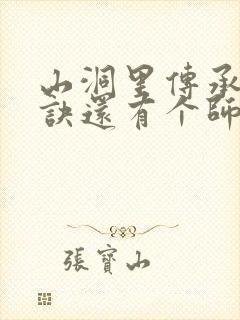 山洞里傳承
訣還有个師
張寶山